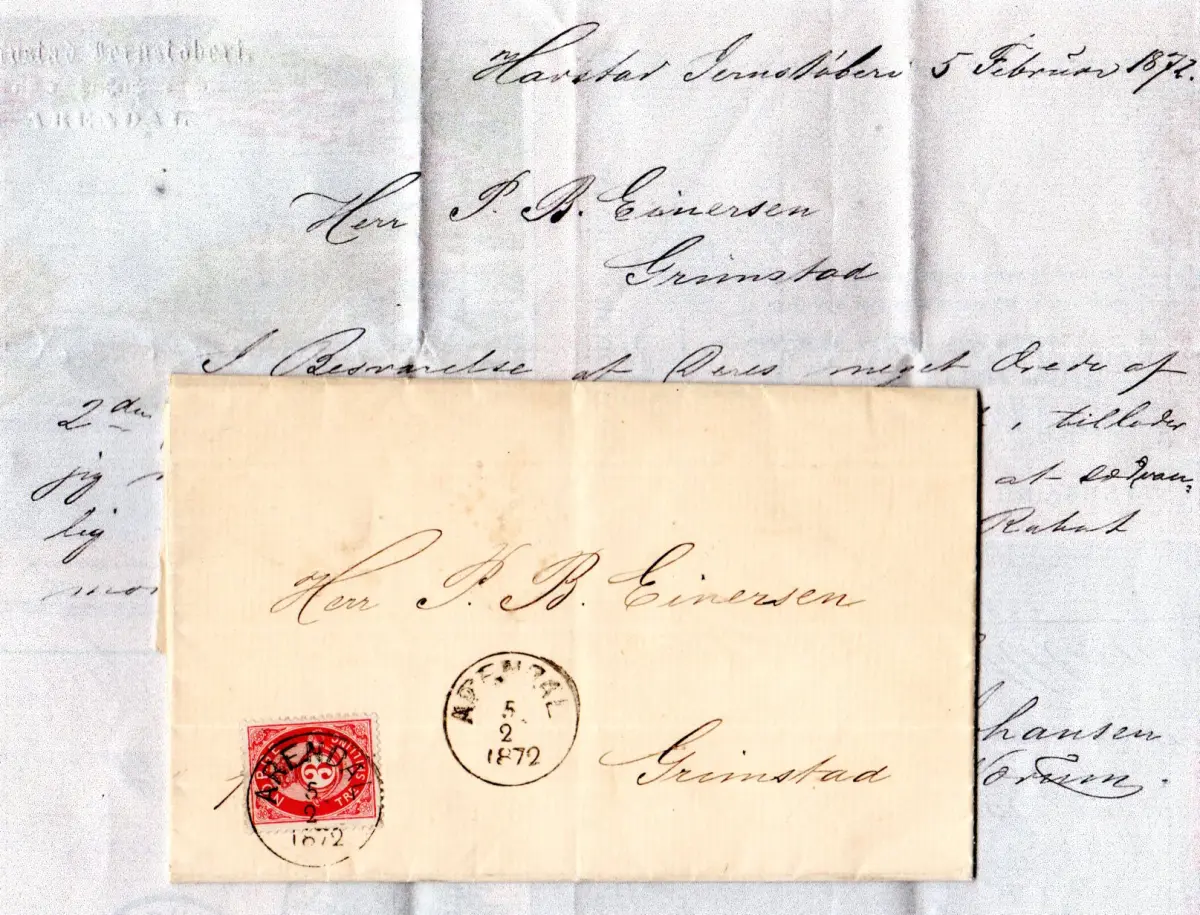 Jernstøberi.
ARENDAL
Havstad Jernstøberi 5 Februar 1872.
Herr P. B. Einersen
Grimstad
I Besvarelse af Deres meget ærede af
2den , tillader
jeg at sædvan-
lig Rabat
Herr P. B. Einersen
ARENDAL
5
2
1872
Grimstad
3
ARENDA
5
2
1872